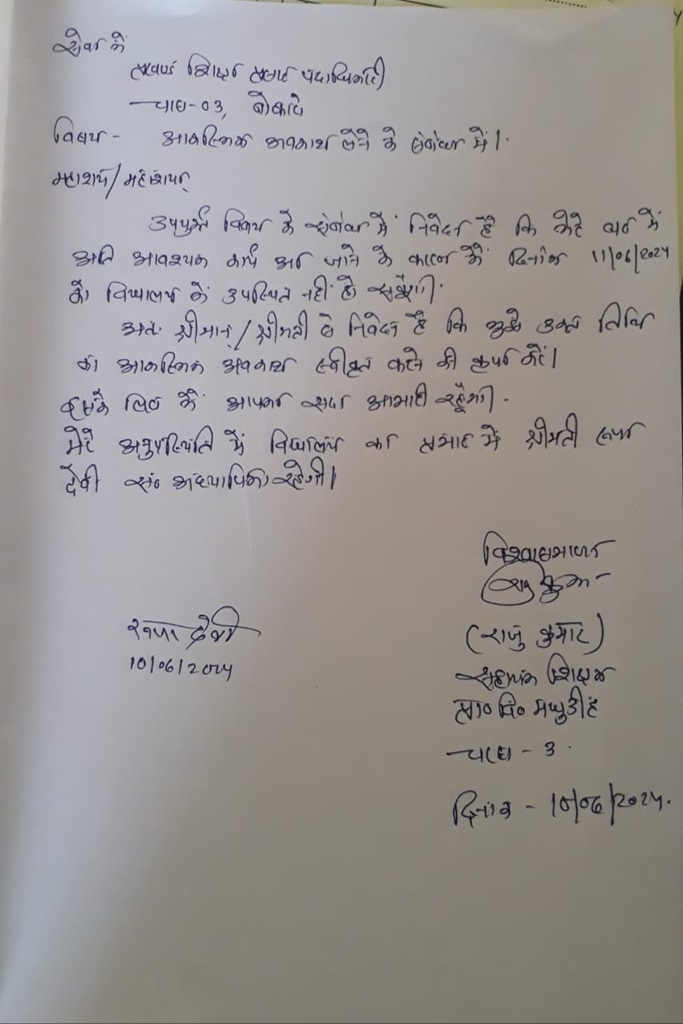 सेवा में
प्रखण्ड शिक्षा प्रसार पदाधिकारी
चास-03, बोकारो
विषय - आकस्मिक अवकाश लेने के संबंध में।
महाशय/महाशया,
उपर्युक्त विषय के संबंध में निवेदन है कि मेरे घर में
अति आवश्यक कार्य आ जाने के कारण मैं दिनांक 11/06/2024
को विद्यालय में उपस्थित नहीं हो सकूँगा।
अतः श्रीमान/श्रीमती से निवेदन है कि मुझे उक्त तिथि
का आकस्मिक अवकाश स्वीकृत करने की कृपा करें।
इसके लिए मैं आपका सदा आभारी रहूँगा।
मेरे अनुपस्थिति में विद्यालय का प्रभार में श्रीमती रूपा
देवी स० अध्यापिका रहेगी।
विश्वासभाजन
(राजु कुमार)
सहायक शिक्षक
प्रा० वि० मधुडीह
चास - 3
दिनांक - 10/06/2024.
रूपा देवी
10/06/2024